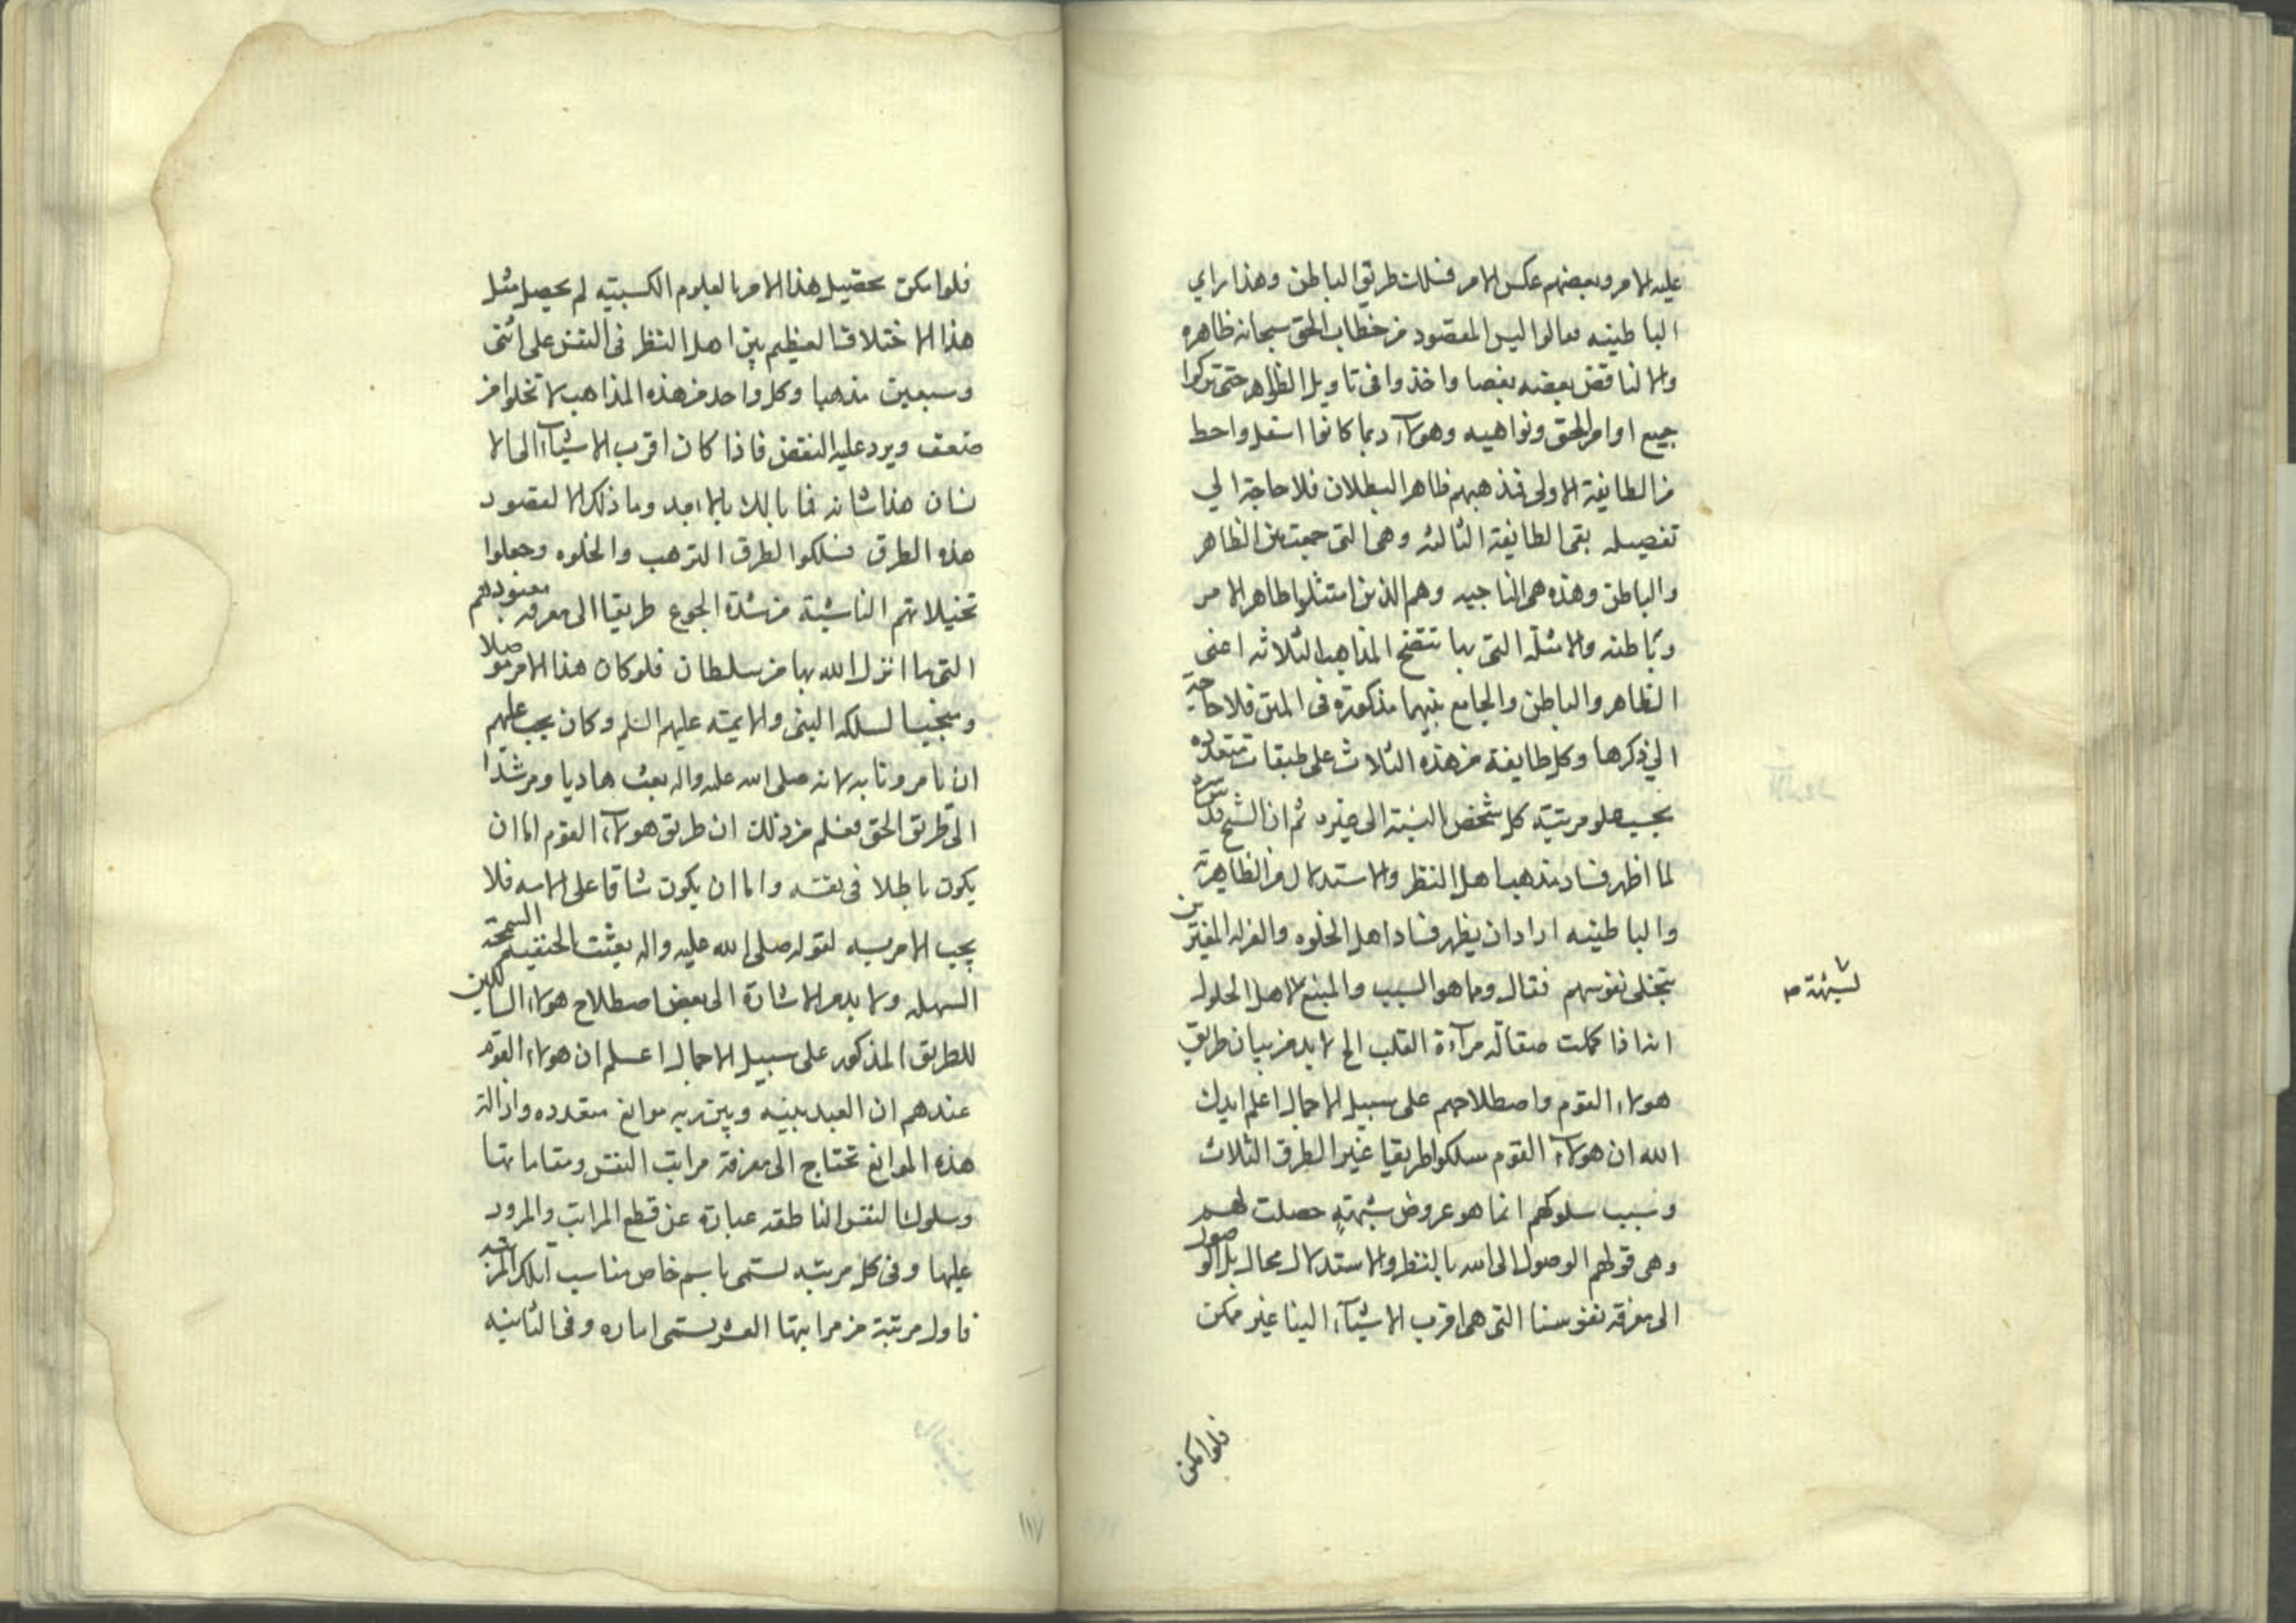 عليه الامر وبعضهم عكس الامر فسلك طريق الباطن وهذا راي
الباطينه فعالوا ليس المقصود من خطاب الحق سبحانه ظاهره
والا لناقض بعضه بعضا واخذوا في تاويل الظواهر حتى تركوا
جميع اوامر الحق ونواهيه وهولآء ربما كانوا اسفل واحط
من الطايفة الاولى فمذهبهم ظاهر البطلان فلا حاجة الي
تفصيله بقى الطايفة الثالثه وهي التي جمعت بين الظاهر
والباطن وهذه هي الناجيه وهم الذين امتثلوا ظاهر الامر
وباطنه والامثلة التي بها تتضح المذاهب الثلاثه اعنى
الظاهر والباطن والجامع بينهما مذكورة في المتن فلا حاجة
الي ذكرها وكل طايفة من هذه الثلاث على طبقات متعدده
بحسب علو مرتبة كل شخص بالنسبة الى غيره ثم ان الشيخ قدس سره
لما اظهر فساد مذهب اهل النظر والاستدلال من الظاهرية
والباطينه اراد ان يظهر فساد اهل الخلوه والعزله المغترين
بتخلى نفوسهم فقال وما هو السبب والمبنع لاهل الحلول
انه اذا كملت صقالة مرآءة القلب الخ لا بد من بيان طريق
هولاء القوم واصطلاحهم على سبيل الاجمال اعلم ايدك
الله ان هولآء القوم سلكوا طريقا غير الطرق الثلاث
وسبب سلوكهم انما هو عروض شبهة حصلت لهم
وهي قولهم الوصول الى الله بالنظر والاستدلال محال بل الوصول
الى معرفة نفوسنا التي هي اقرب الاشيآء الينا غير ممكن
لشبهة ص
فلو امكن
فلو امكن تحصيل هذا الامر بالعلوم الكسبيه لم يحصل مثل
هذا الاختلاف العظيم بين اهل النظر في النفس على اثنى
وسبعين مذهبا وكل واحد من هذه المذاهب لا تخلوا من
ضعف ويرد عليه النقض فاذا كان اقرب الاشيآء الى الا
نسان هذا شانه فما بالك بالابعد وما ذلك الا لقصود
هذه الطرق فسلكوا لطرق الترهب والخلوه وجعلوا
تخيلاتهم الناشية من شدة الجوع طريقا الى معرفة معبودهم
التي ما انزل الله بها من سلطان فلو كان هذا الامر موصلا
ومنجيا لسلكه النبي والايمه عليهم السلم وكان يجب عليهم
ان يامرونا به لانه صلى الله عليه واله بعث هاديا ومرشدا
الى طريق الحق فعلم من ذلك ان طريق هولآء القوم اما ان
يكون باطلا في نفسه واما ان يكون شاقا على الامه فلا
يجب الامر به لقوله صلى الله عليه واله بعثت بالحنفيه السمحة
السهله ولا بد من الاشارة الى بعض اصطلاح هولاء السالكين
للطريق المذكور على سبيل الاجمال اعلم ان هولاء القوم
عندهم ان العبد بينه وبين ربه موانع متعدده وازالة
هذه الموانع تحتاج الى معرفة مراتب النفس ومقاماتها
وسلوك النفس الناطقه عبارة عن قطع المراتب والمرور
عليها وفي كل مرتبه تسمى باسم خاص مناسب لتلك المرتبه
فاول مرتبة من مراتبها العشر تسمى اماره وفي الثانيه
١١٧